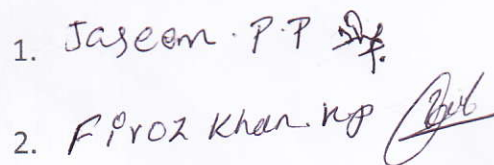 1. Jaseem . P. P
2. Firoz Khan. kp